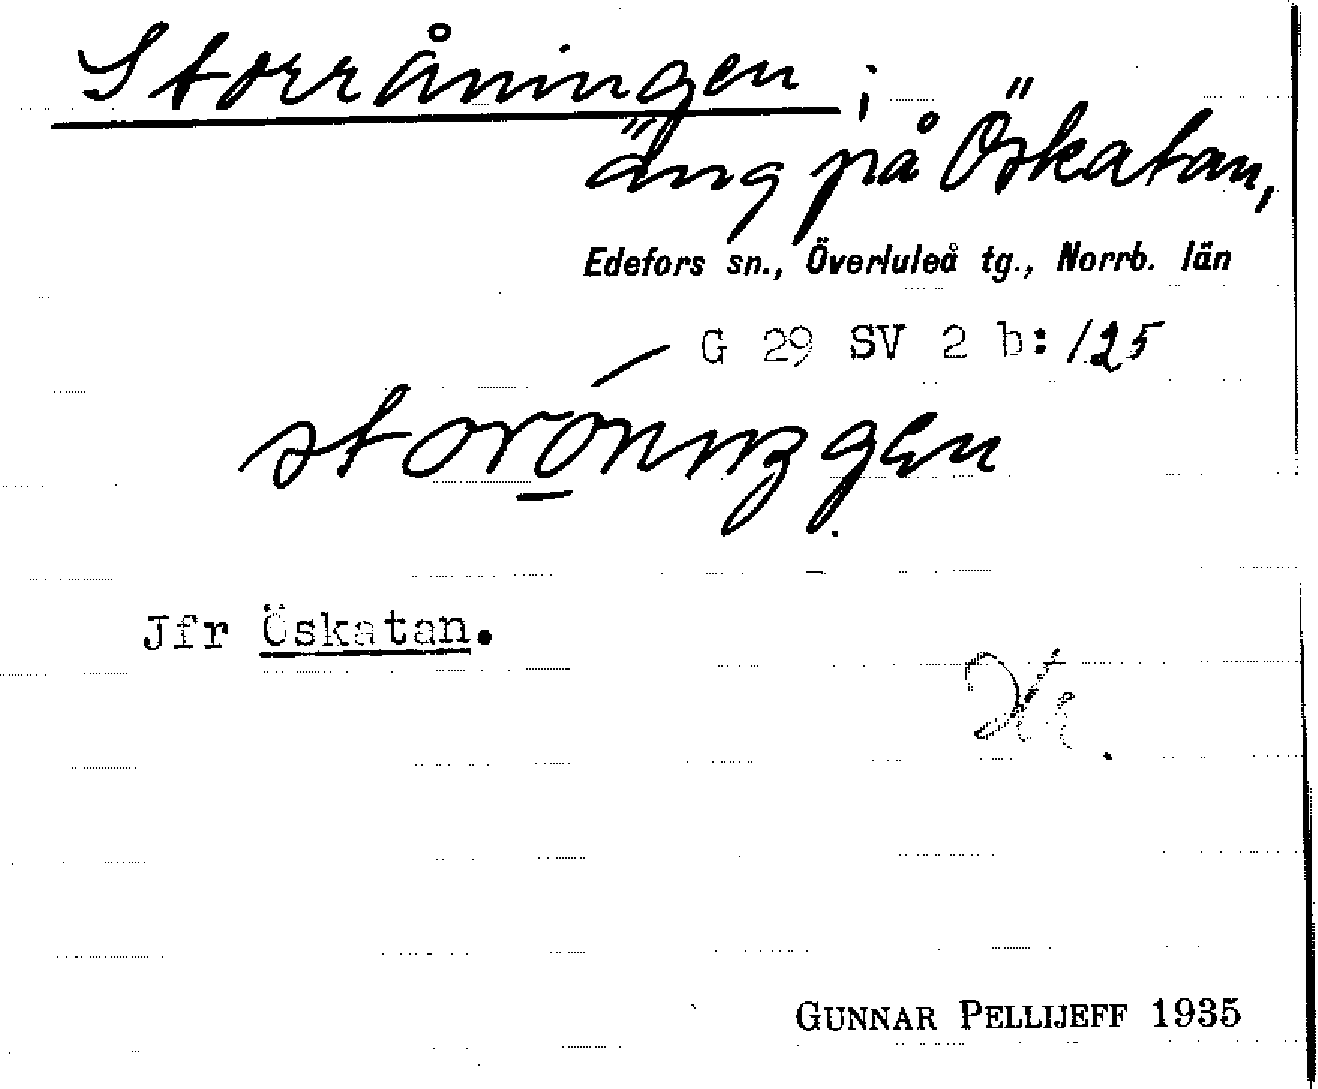 Storråningen;
äng på Öskatan,
Edefors sn., Överluleå tg., Norrb. län
G 29 SV 2 b:125
Jfr Öskatan.
GUNNAR PELLIJEFF 1935